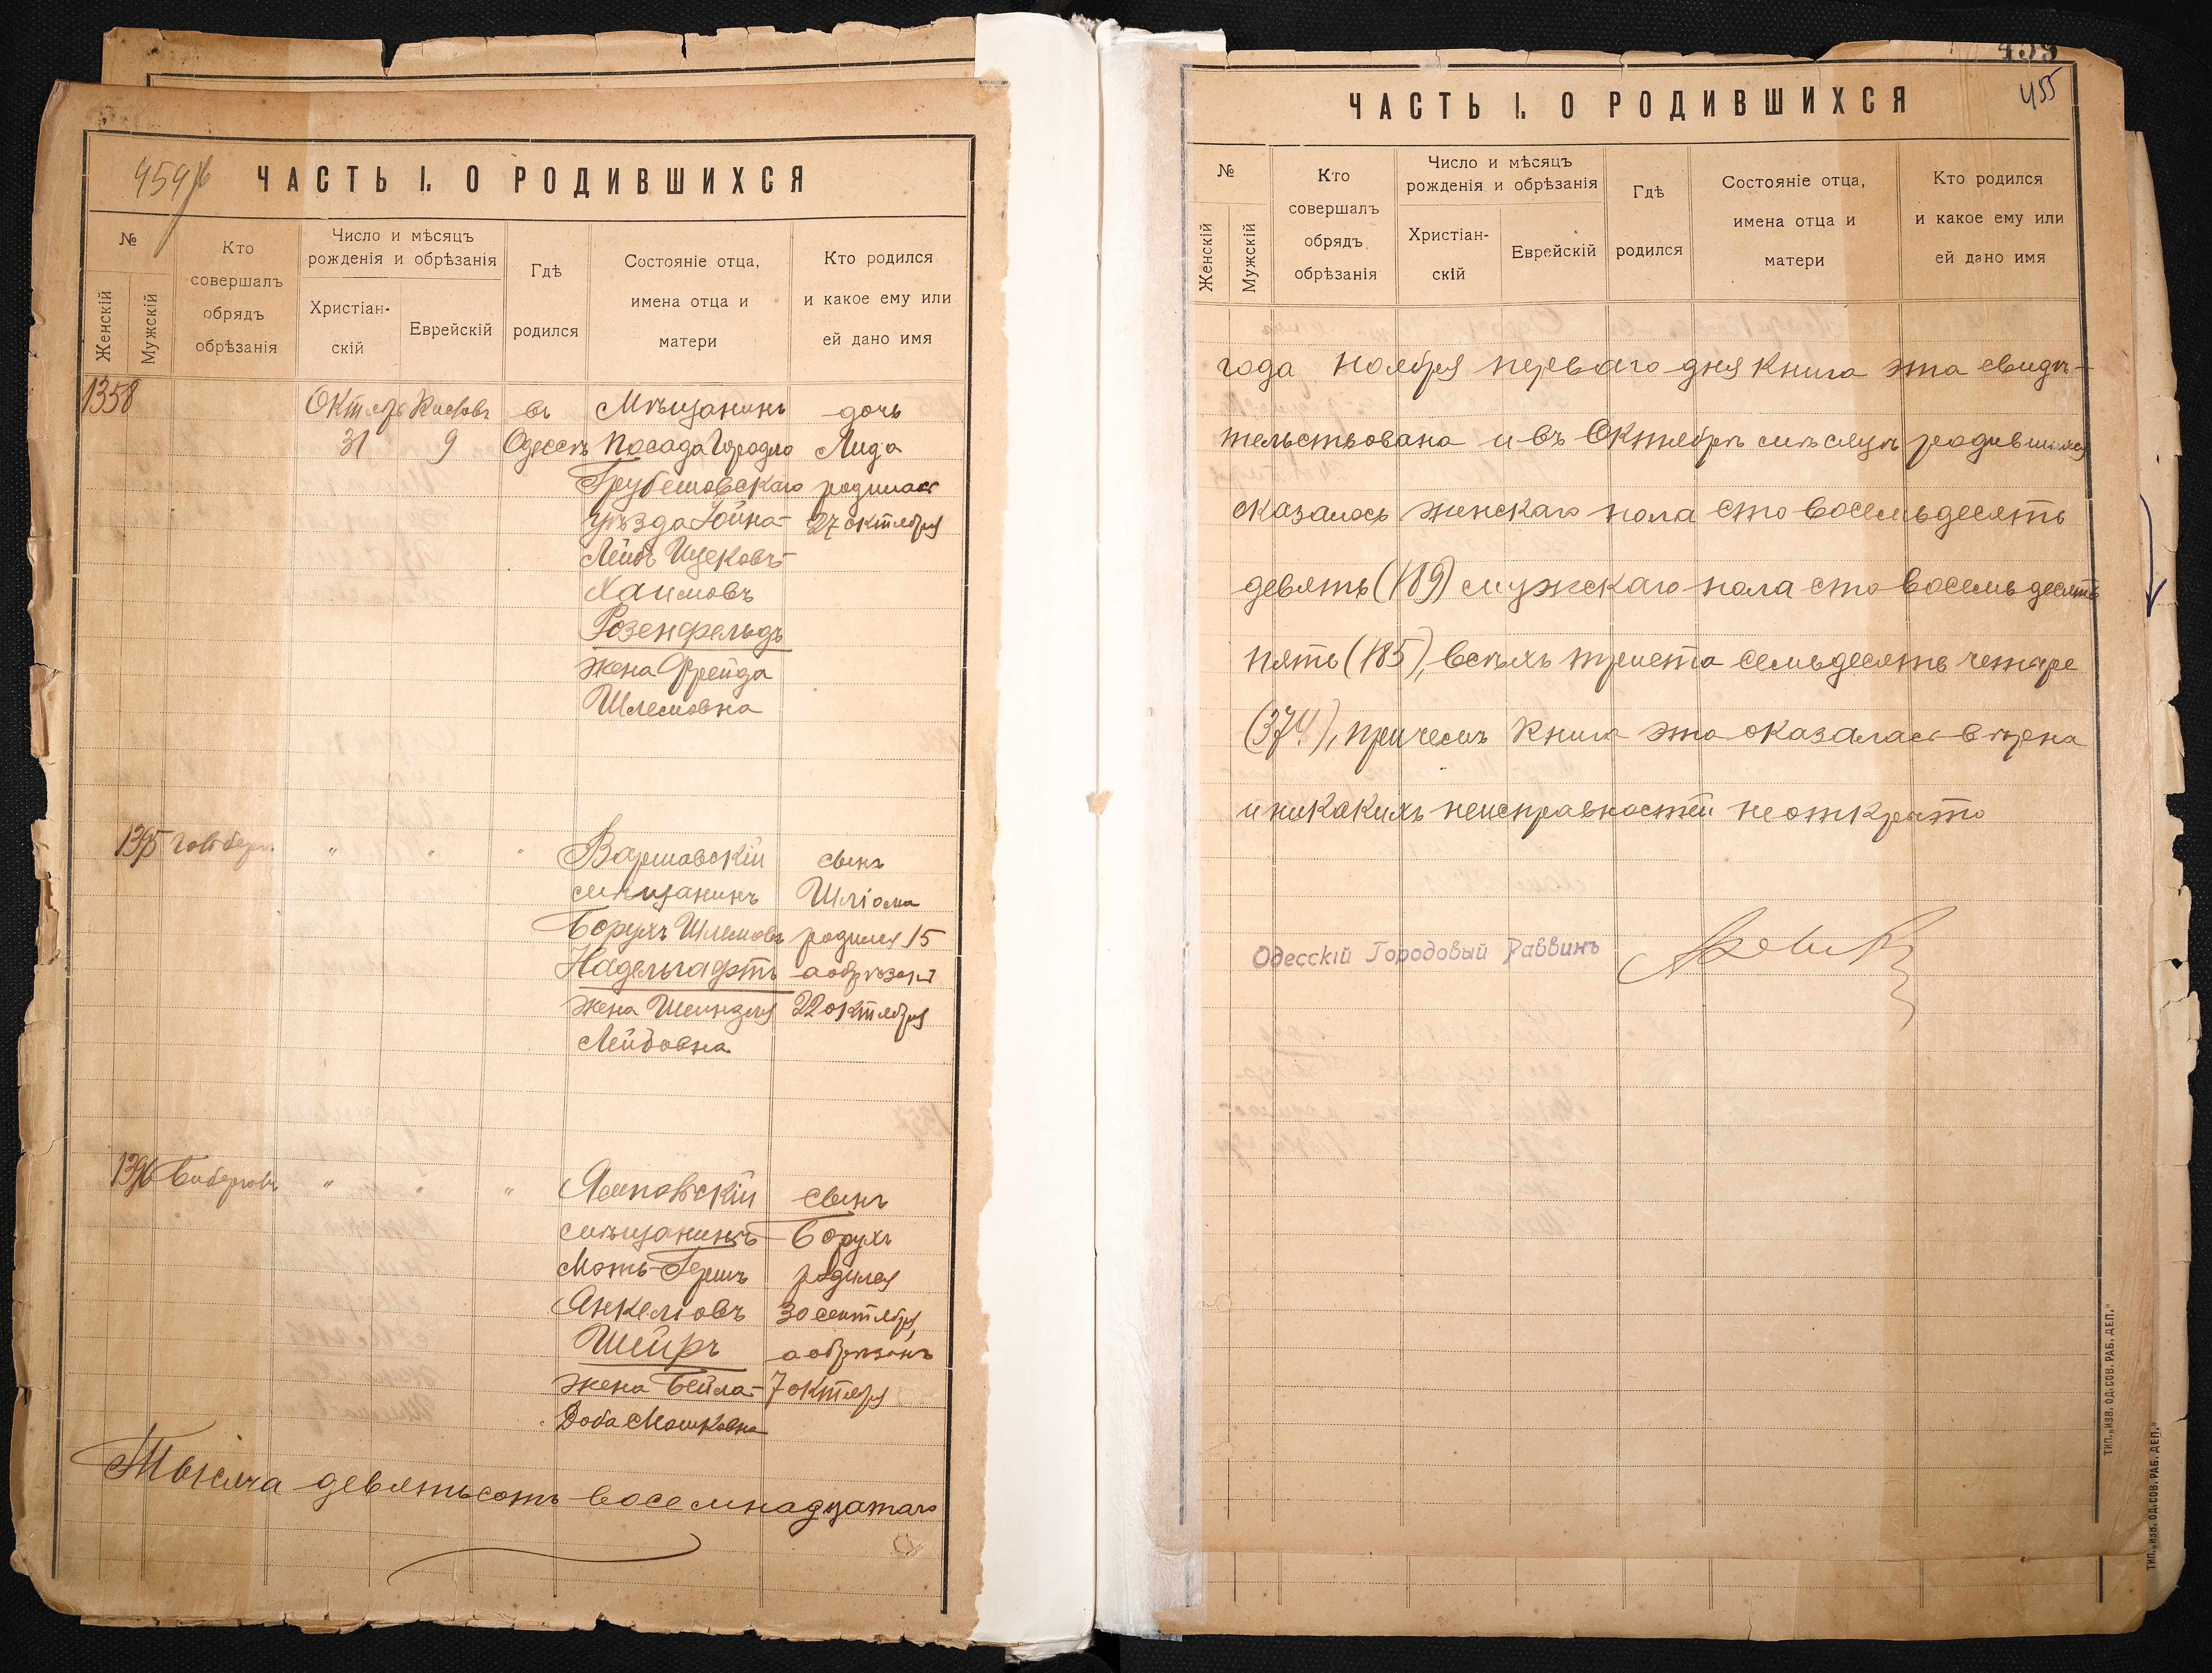 454
ЧАСТЬ I. О РОДИВШИХСЯ
№
Женскій
Мужскій
Кто
совершалъ
обрядъ
обрѣзанія
Число и мѣсяцъ
рожденія и обрѣзанія
Христіан-
скій
Еврейскій
Гдѣ
родился
Состояніе отца,
имена отца и
матери
Кто родился
и какое ему или
ей дано имя
1358 Октябрь Кислевъ въ Мѣщанинъ дочь
31 9 Одессѣ посада Городло Лида
Грубешовскаго родилась
уѣзда Іойна- 27 октября
Лейбъ Ицековъ-
Хаимовъ
Розенфельдъ
жена Фрейда
Шлемовна
1395 " " " Варшавскій сынъ
мѣщанинъ Шліома
Борухъ Шлемовъ родился 15
Надельгафтъ а обрѣзанъ
жена Шейндля 22 октября
Лейбовна
1396 " " " Ямповскій сынъ
мѣщанинъ Борухъ
Моть-Гершъ родился
Янкеліовъ 30 сентября,
Шейръ а обрѣзанъ
жена Бейла- 7 октября
Доба Мошковна
Тысяча девятьсотъ восемнадцатаго
455
455
ЧАСТЬ I. О РОДИВШИХСЯ
№
Женскій
Мужскій
Кто
совершалъ
обрядъ
обрѣзанія
Число и мѣсяцъ
рожденія и обрѣзанія
Христіан-
скій
Еврейскій
Гдѣ
родился
Состояніе отца,
имена отца и
матери
Кто родился
и какое ему или
ей дано имя
года ноября перваго дня книга эта свидѣ-
тельствована и въ Октябрѣ мѣсяцѣ родившихся
оказалось женскаго пола сто восемьдесять
девять (189) мужскаго пола сто восемьдесять
пять (185), всѣхъ триста семьдесять четыре
(374), причемъ книга эта оказалась вѣрна
и никакихъ неисправностей не открыто
Одесскій Городовый Раввинъ
ТИП. „ИЗВ. ОД. СОВ. РАБ. ДЕП."
ТИП. „ИЗВ. ОД. СОВ. РАБ. ДЕП."